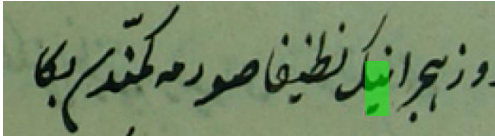 روز هجرانیک نظیفا صورمه کمتردن بکا